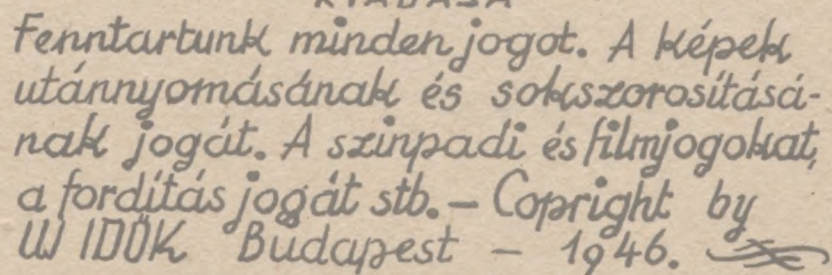 KIADÁSA
Fenntartunk minden jogot. A képek
utánnyomásának és sokszorosításá-
nak jogát. A szinpadi és filmjogokat,
a fordítás jogát stb. – Copright by
UJ IDŐK Budapest – 1946.